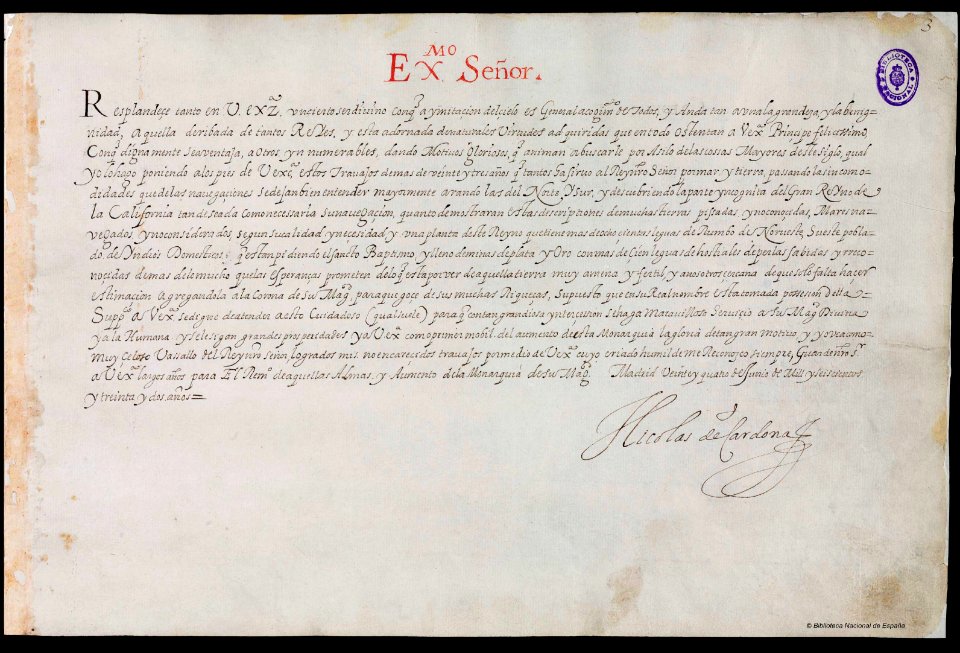 3
Ex.mo Señor.
BIBLIOTECA NACIONAL
Resplandeçe tanto en V. exª. vn cierto ser divino con q̃ a ymitacion del çielo es General acogim̃to de Todos, y Anda tan a vna la grandeza y la benig-
nidad; a quella deribada de tantos Reyes, y esta adornada de naturales Virtudes ad quiridas que en todo os tentan a Vexª Prinçipe feliçissimo,
Con q̃ dignamente se aventaja, a otros yn numerables, dando Motivos gloriosos, q̃ animan a buscarle por Asilo de las cossas Mayores deste siglo, qual
yo lo hago poniendo a los pies de Vexª estos Travajos de mas de veinte y tres años q̃ tantos ha sirvo al Rey nr̃o Señor por mar y tierra, pasando las in como-
didades que de las navegaçiones se dejan bien entender mayormente arando las del Norte y Sur, y descubriendo la parte yncognita del Gran Reyno de
la California tan deseada como necessaria su navegaçion, quanto demostraran estas descriptiones de muchas tierras pizadas, y no conoçidas, Mares na-
vegados, y no considerados, segun su calidad y neçesidad, y vna planta deste Reyno que tiene mas de ocho cientas leguas de Rumbo de Norueste Sueste pobla-
do de Yndios Domesticos; q̃ estan pidiendo el sancto Baptismo, y lleno de minas de plata y Oro con mas de çien leguas de hostiales de perlas sabidos y rreco-
noçidas de mas de lo mucho que las esperanças prometen de lo q̃ esta por ver de aquella tierra muy amena y fertil y a nosotros cercana de que solo falta haçer
estimaçion agregandola a la Corona de su Magd. para que goce de sus muchas Riqueças, supuesto que en su Real nombre esta tomada posesion della
Suppcº. a Vexª se digne de atender a esto Cuidadoso (qual suele) para q̃ con tan grandiosa yntercession se haga Maravilloso Serviçio a su Magd Divina
y a la Humana y se le sigan grandes prosperidades y a Vexª como primer mobil del aumento desta Monarquia la gloria de tan gran motivo, y yo vea como
muy çeloso Vasallo del Rey nr̃o señor, logrados mis no encareçidos travajos por medio de Vexª cuyo criado humilde me Reconozco siempre, Guarde nr̃o Sr.
a Vexª largos años para El Remº de aquellas Almas, y Aumento de la Monarquia de su Magd. Madrid Veinte y quatro de Junio de Mill y seiscientos
y treinta y dos años=
Nicolas de Cardona
© Biblioteca Nacional de España